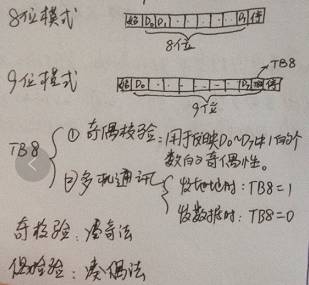 8位模式
起 D₀ D₁ D₇ 停
8位
TB8
9位模式
起 D₀ D₇ 停
9位
TB8
① 奇偶校验：用于反映D₀~D₇中1的个
数的奇偶性。
②多机通讯
发地址时：TB8=1
发数据时：TB8=0
奇校验：凑奇法
偶检验：凑偶法